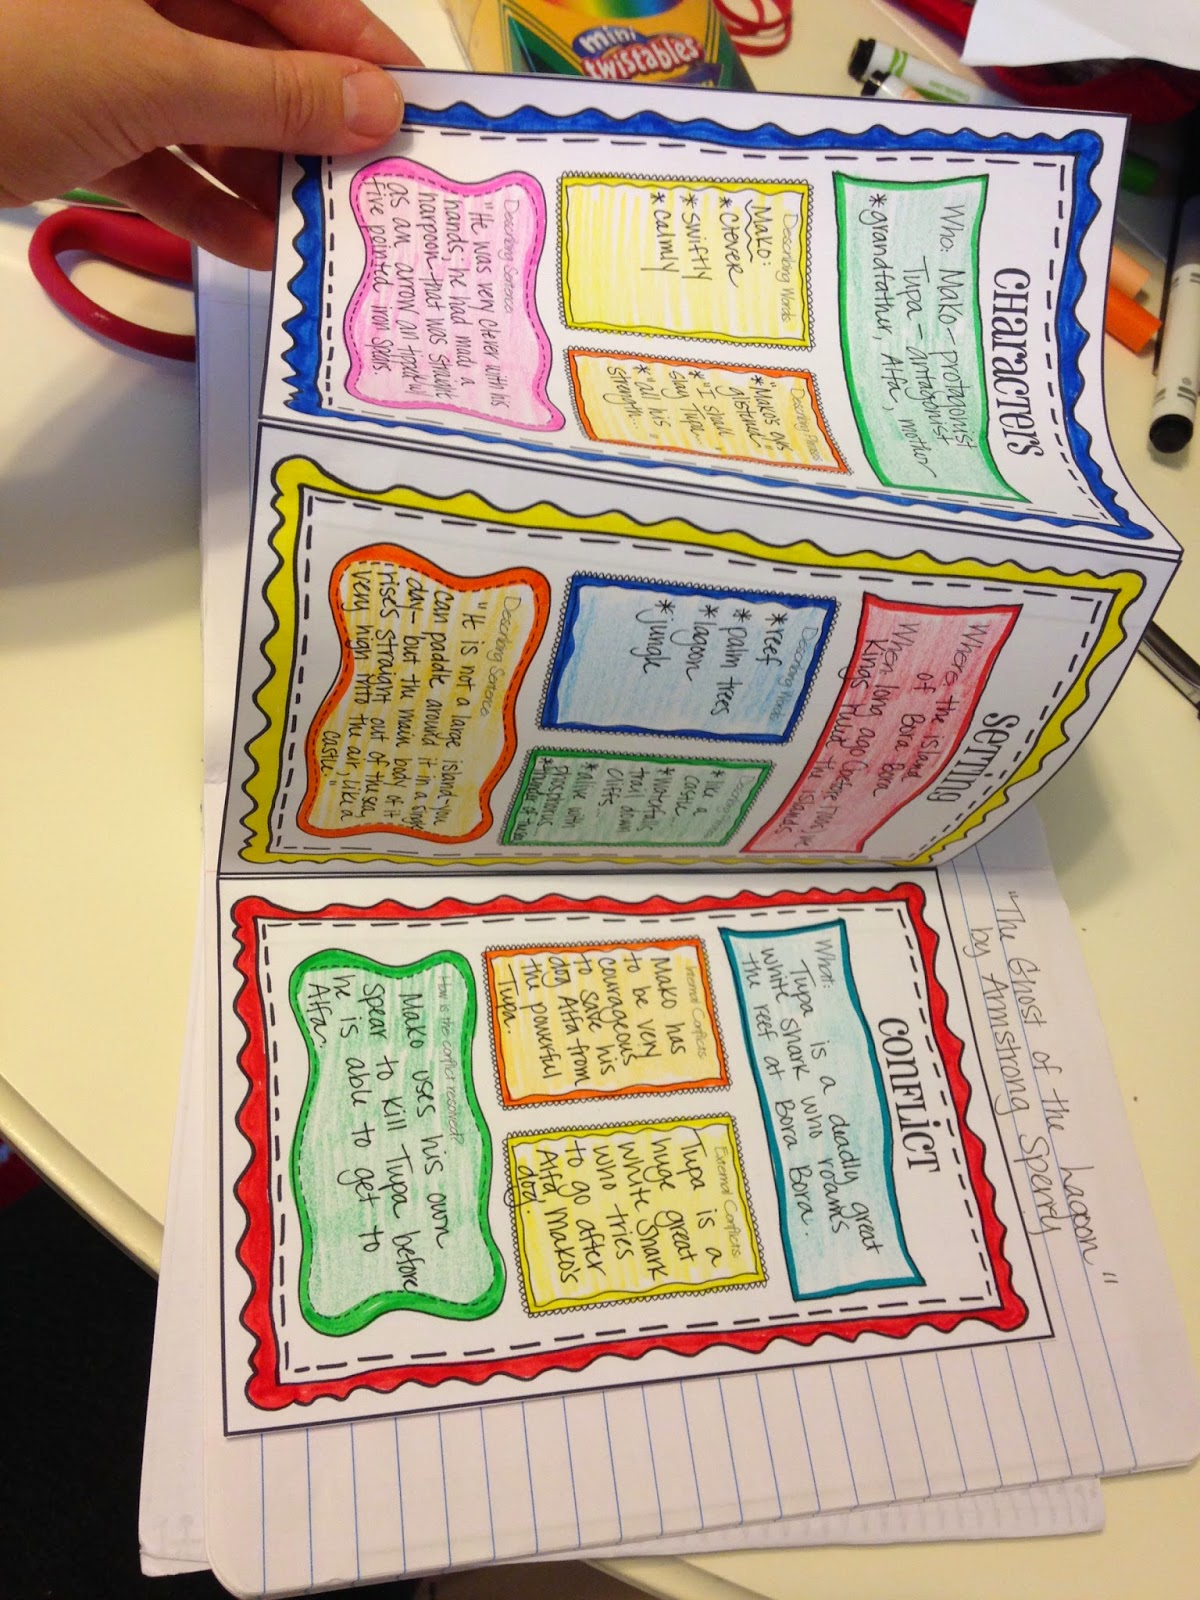 mini
twistables
Characters
Who: Mako - protagonist
Tupa - antagonist
*grandfather, Alfa, mother
Describing Words
Mako:
*clever
*swiftly
*calmly
Describing Phrases
*"Mako's eyes
glistened"
*"I shall
slay Tupa..."
*"all his
strength..."
Describing Sentence
"He was very clever with his
hands; he had made a
harpoon - that was straight
as an arrow and tipped w/
five pointed iron spears.
Setting
Where: the island
of Bora Bora
When: long ago (before
Kings ruled the islands
Describing Words
*reef
*palm trees
*lagoon
*jungle
*like a
castle...
*waterfalls
trail down
cliffs...
*alive with
phosphorous
*thunder of
Describing Sentence
"It is not a large island - you
can paddle around it in a single
day - but the main body of it
rises straight out of the sea,
very high into the air, like a
castle."
Conflict
What:
Tupa is a deadly great
white shark who roams
the reef at Bora Bora.
Internal Conflicts:
Mako has
to be very
courageous
to save his
dog Alfa from
the powerful
Tupa.
External Conflicts:
Tupa is a
huge great
white shark
who tries
to go after
Alfa Mako's
dog.
How is the conflict resolved?
Mako uses his own
spear to kill Tupa before
he is able to get to
Alfa.
"The Ghost of the Lagoon"
by Armstrong Sperry